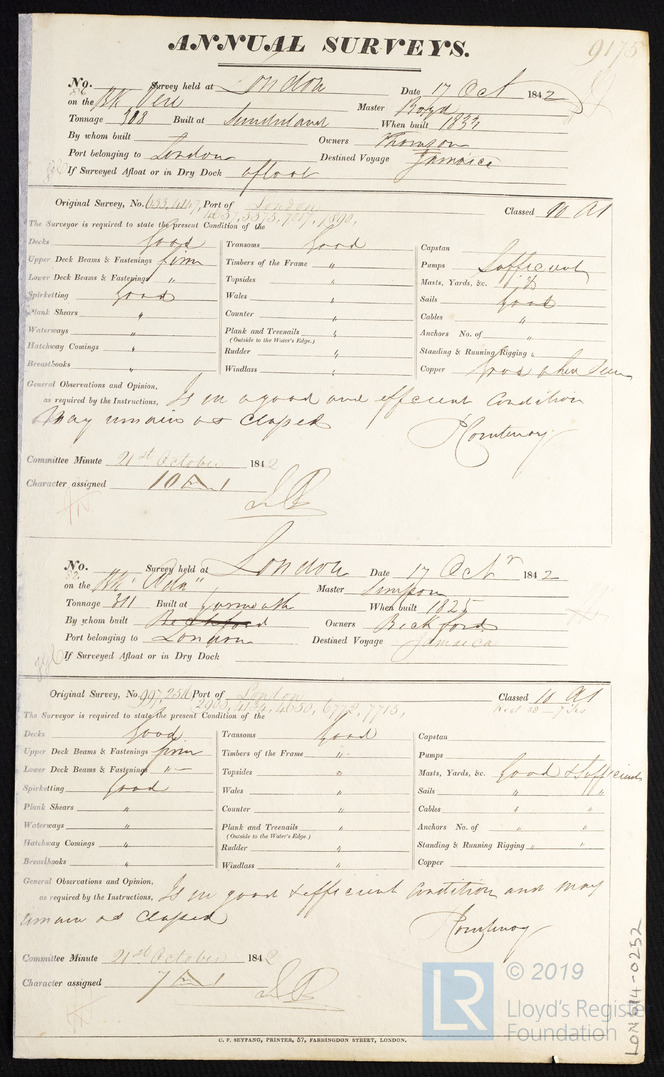 ANNUAL SURVEYS. 9175
No. Survey held at London Date 17 Oct 1842
on the Bk Vere Master Boyd
Tonnage 308 Built at Sunderland When built 1833
By whom built Owners Thomson
Port belonging to London Destined Voyage Jamaica
If Surveyed Afloat or in Dry Dock afloat
Original Survey, No. Port of London Classed 10 A1
The Surveyor is required to state the present Condition of the
Decks Good Transoms Good Capstan
Upper Deck Beams & Fastenings firm Timbers of the Frame " Pumps Sufficient
Lower Deck Beams & Fastenings " Topsides " Masts, Yards, &c.
Spirketting Good Wales " Sails Good
Plank Shears " Counter " Cables "
Waterways " Plank and Treenails " Anchors No. of "
(Outside to the Water's Edge.)
Hatchway Comings " Rudder " Standing & Running Rigging "
Breasthooks " Windlass " Copper Good when seen
General Observations and Opinion,
as required by the Instructions, Is in a good and efficient Condition
May remain as Classed
Committee Minute 21st October 1842
Character assigned 10 A 1
No. Survey held at London Date 17 Octr 1842
on the Bk "Ada" Master Simpson
Tonnage 311 Built at Yarmouth When built 1825
By whom built Beckford Owners Beckford
Port belonging to London Destined Voyage Jamaica
If Surveyed Afloat or in Dry Dock
Original Survey, No. Port of London Classed 10 A1
2903, 4134, 4650, 6772, 7715,
The Surveyor is required to state the present Condition of the
Decks Good Transoms Good Capstan
Upper Deck Beams & Fastenings firm Timbers of the Frame " Pumps
Lower Deck Beams & Fastenings " Topsides " Masts, Yards, &c. Good & Sufficient
Spirketting Good Wales " Sails " "
Plank Shears " Counter " Cables " "
Waterways " Plank and Treenails " Anchors No. of " "
(Outside to the Water's Edge.)
Hatchway Comings " Rudder " Standing & Running Rigging " "
Breasthooks " Windlass " Copper
General Observations and Opinion,
as required by the Instructions, Is in good & efficient Condition and may
remain as Classed
Committee Minute 21st October 1842
Character assigned 7 A 1
C. F. SEYFANG, PRINTER, 57, FARRINGDON STREET, LONDON.
LR © 2019
Lloyd's Register
Foundation
LON614-0252